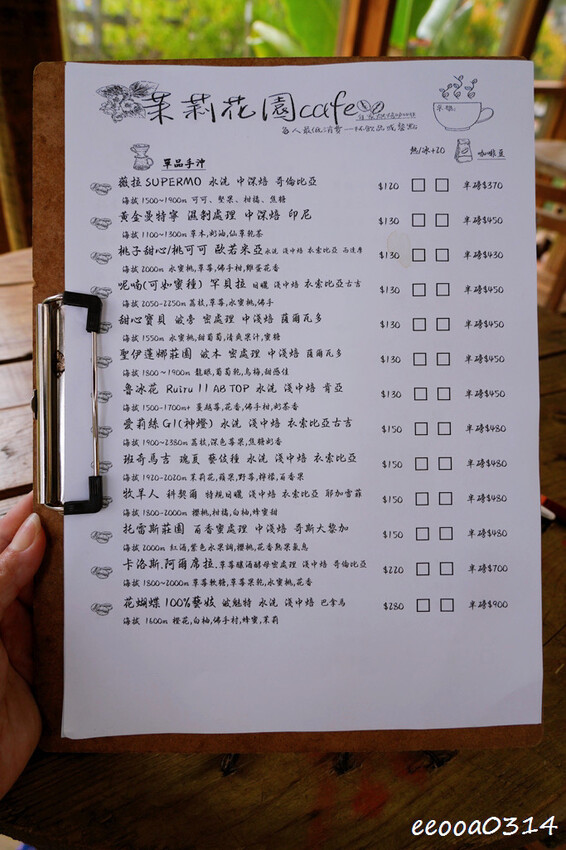 茉莉花園cafe
每人最低消費一杯飲品或餐點
菜單:
單品手沖
熱/冰+20
咖啡豆
薇拉 SUPERMO 水洗 中深焙 哥倫比亞 $120 半磅$370
海拔 1500~1900m 可可、堅果、柑橘、焦糖
黃金曼特寧 濕剝處理 中深焙 印尼 $130 半磅$450
海拔 1100~1300m 草木,奶油,仙草乾茶
桃子甜心/桃可可 歐若米亞 水洗 淺中焙 衣索比亞 西達摩 $130 半磅$430
海拔 2000m 水蜜桃,草莓,佛手柑,雞蛋花香
呢喃(可如蜜種) 罕貝拉 日曬 淺中焙 衣索比亞古吉 $130 半磅$450
海拔 2050-2250m 荔枝,草莓,水蜜桃,佛手
甜心寶貝 波旁 蜜處理 中淺焙 薩爾瓦多 $130 半磅$450
海拔 1550m 水蜜桃,甜葡萄,清爽果汁,蜜糖
聖伊蓮娜莊園 波本 蜜處理 中淺焙 薩爾瓦多 $130 半磅$450
海拔 1800~1900m 龍眼,葡萄乾,烏梅,甜感佳
魯冰花 Ruiru 11 AB TOP 水洗 淺中焙 肯亞 $130 半磅$450
海拔 1500-1700m+ 蔓越莓,花香,佛手柑,奶茶香
愛莉絲 G1(神燈) 水洗 淺中焙 衣索比亞古吉 $150 半磅$480
海拔 1900~2380m 荔枝,深色莓果,焦糖奶香
班奇馬吉 瑰夏 藝伎種 水洗 淺中焙 衣索比亞 $150 半磅$480
海拔 1920-2020m 茉莉花,蘋果,野莓,檸檬,百香果
牧羊人 科契爾 特規日曬 淺中焙 衣索比亞 耶加雪菲 $150 半磅$480
海拔 1800-2000m 櫻桃,柑橘,白柚,蜂蜜甜
托雷斯莊園 百香蜜處理 中淺焙 哥斯大黎加 $150 半磅$480
海拔 2000m 紅酒,紫色水果調,櫻桃,花香熟果氣息
卡洛斯.阿爾席拉,草莓釀酒酵母蜜處理 淺中焙 哥倫比亞 $220 半磅$700
海拔 1800~2000m 草莓軟糖,草莓果乾,水蜜桃,花香
花蝴蝶 100%藝妓 波魁特 水洗 淺中焙 巴拿馬 $280 半磅$900
海拔 1600m 橙花,白柚,佛手柑,蜂蜜,茉莉
eeooa0314